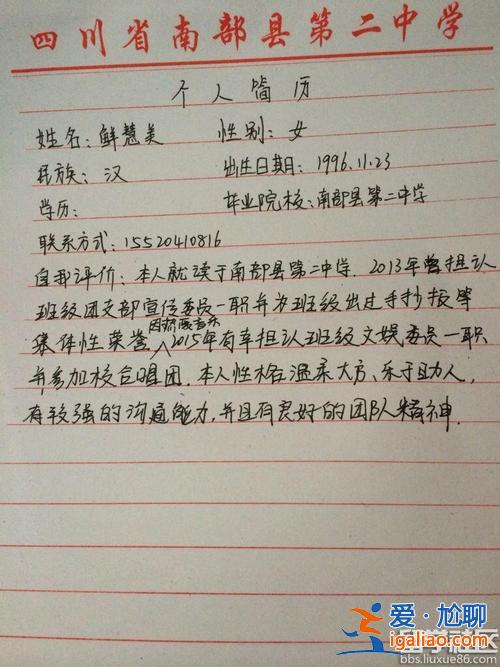 四川省南部县第二中学
个人简历
姓名：鲜慧美 性别：女
民族：汉 出生日期：1996.11.23
学历： 毕业院校：南部县第二中学
联系方式：15520410816
自我评价：本人就读于南部县第二中学．2013年曾担认
班级团支部宣传委员一职并为班级出过手抄报等
因热爱音乐
集体性荣誉 2015年有幸担认班级文娱委员一职
并参加校合唱团．本人性格温柔大方、乐于助人，
有较强的沟通能力，并且有良好的团队精神．
爱·尬聊
igaliao.com
留学社区
bbs.liuxue86.com